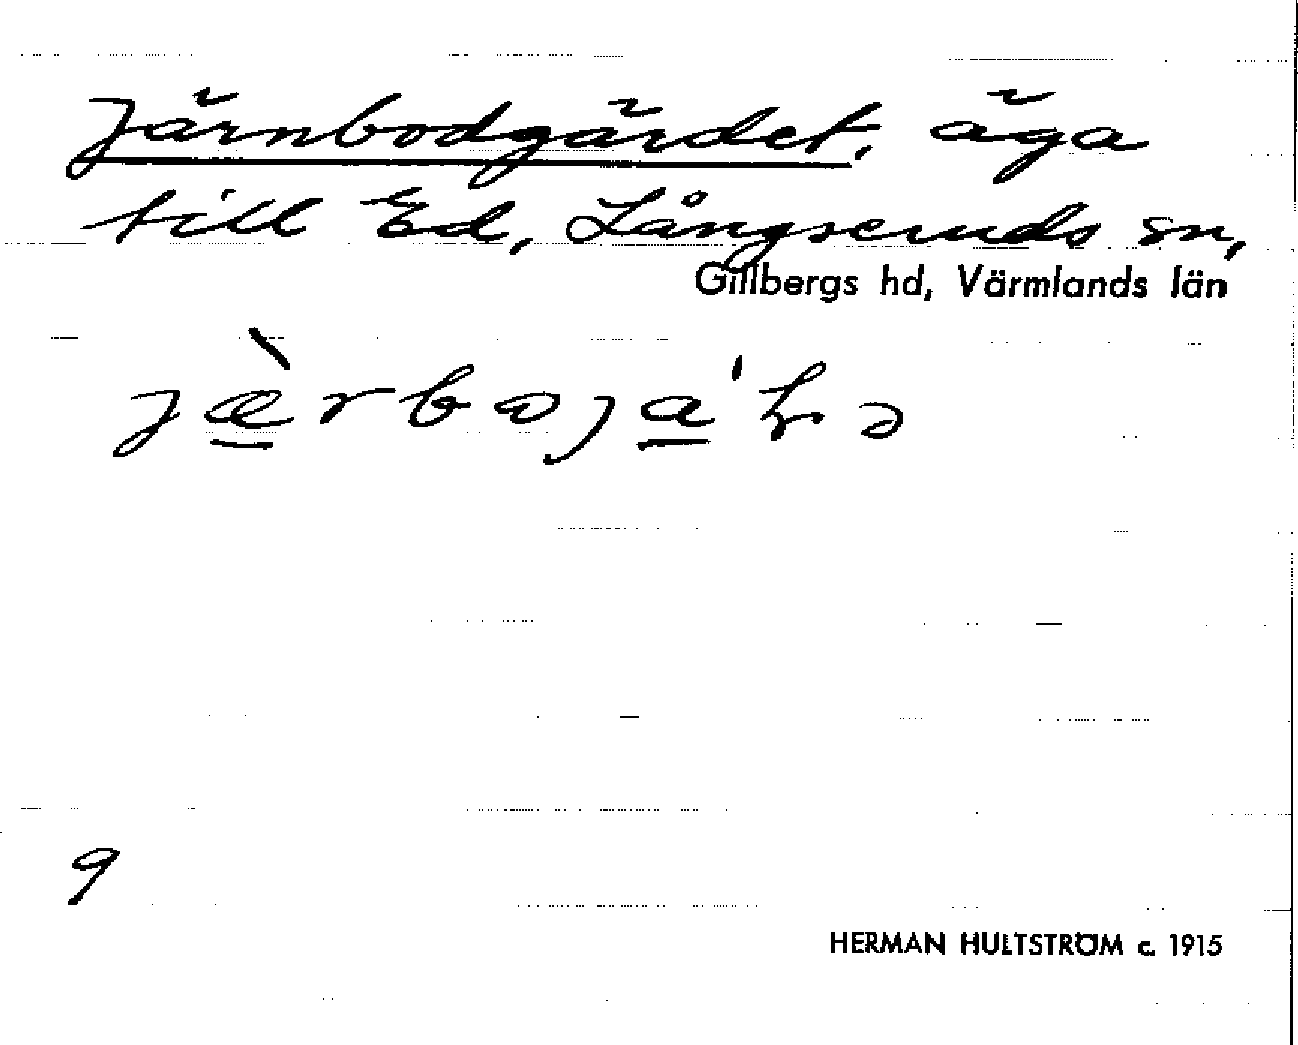 Järnbodgärdet, äga
till Ed, Långseruds sn,
Gillbergs hd, Värmlands län
9
HERMAN HULTSTRÖM c. 1915